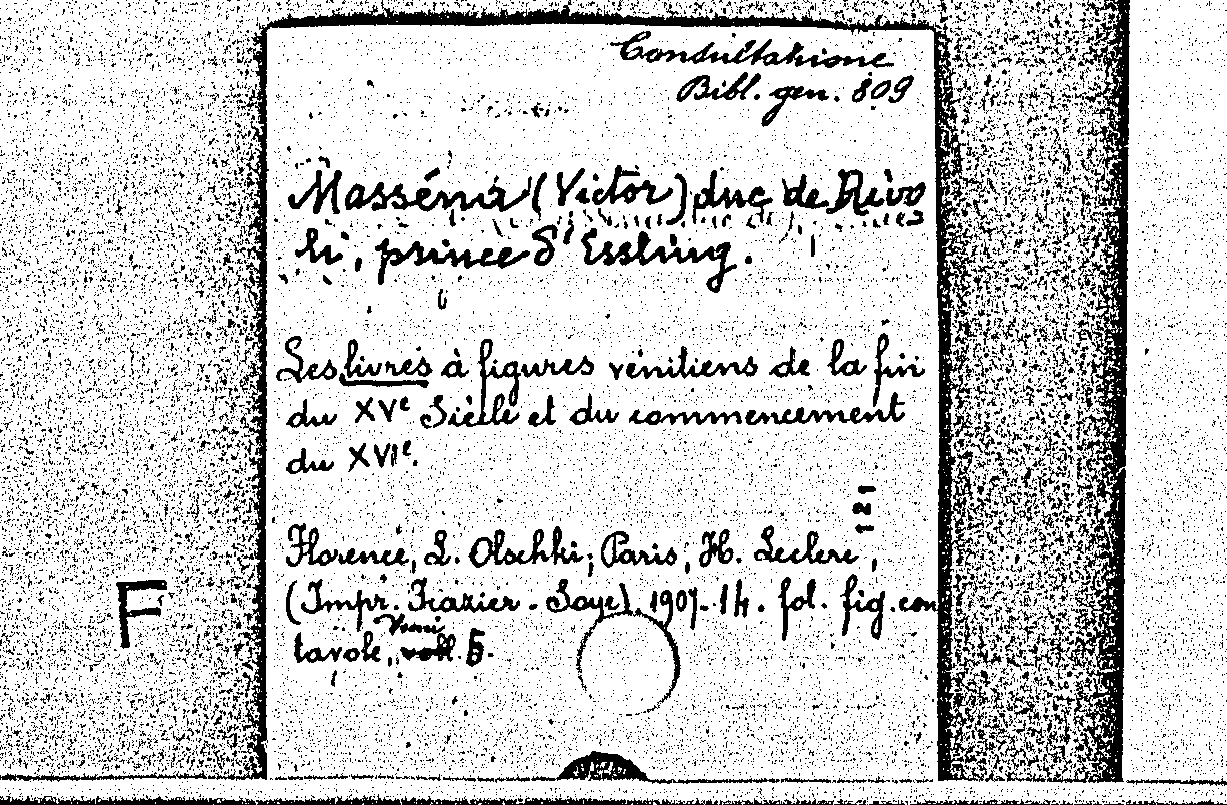 Consultazione
Bibl. gen. 809
Masséna (Victor) duc de Rivo
li, prince d'Essling.
Les livres à figures vénitiens de la fin
du XVe Siècle et du commencement
du XVIe.
121
Florence, L. Olschki; Paris, H. Leclerc,
(Impr. Frazier-Soye). 1907-14. fol. fig. con
Tomi
tavole, voll. 5.
F